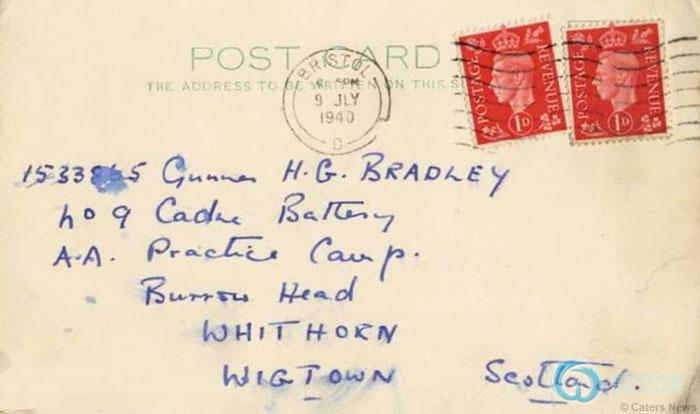 POST CARD
THE ADDRESS TO BE WRITTEN ON THIS
BRISTOL
PM
9 JLY
1940
D
POSTAGE REVENUE
1D
POSTAGE REVENUE
1D
Gunner H.G. BRADLEY
No 9 Cadre Battery
A.A. Practice Camp.
Burrow Head
WHITHORN
WIGTOWN Scotland.
© Caters News